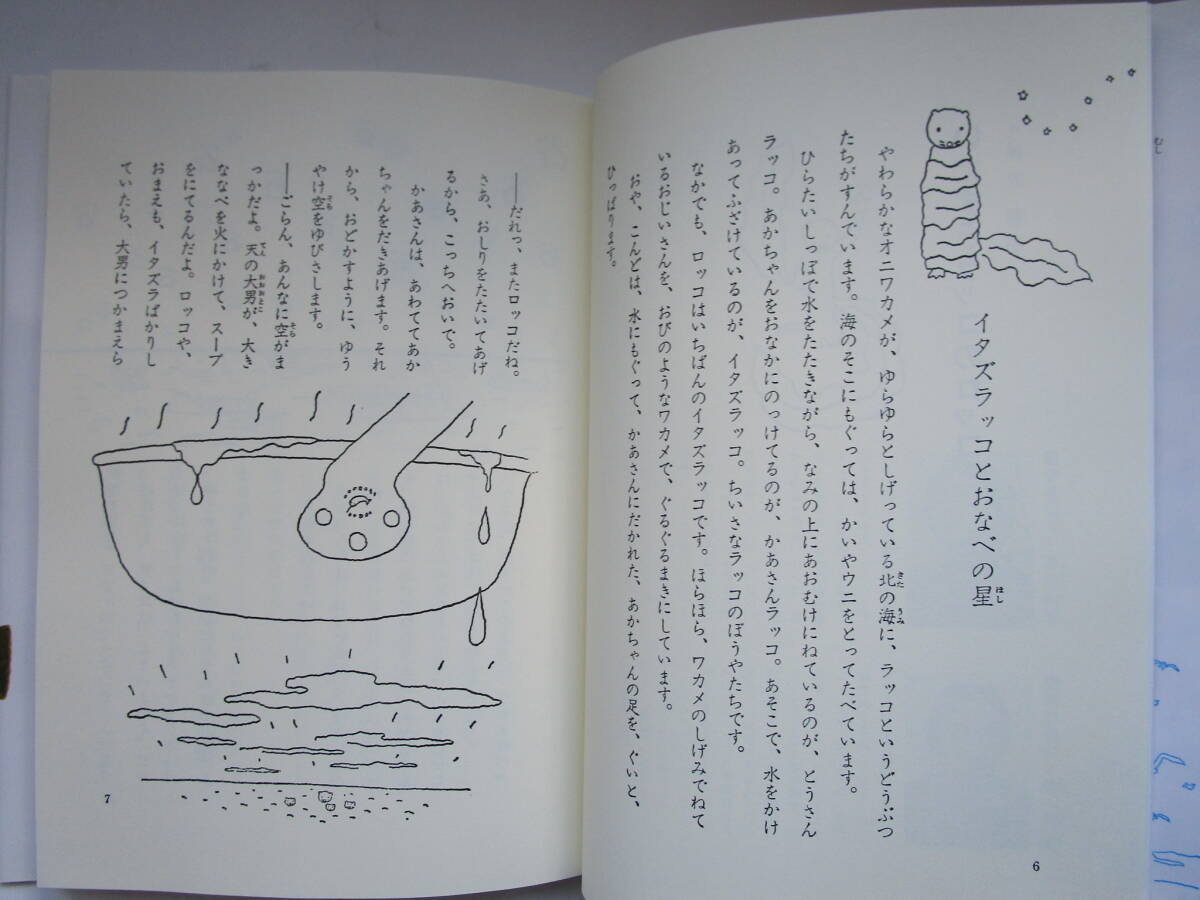 イタズラッコとおなべの星
ほし
やわらかなオニワカメが、ゆらゆらとしげっている北の海に、ラッコというどうぶつ
きた
うみ
たちがすんでいます。海のそこにもぐっては、かいやウニをとってたべています。
ひらたいしっぽで水をたたきながら、なみの上にあおむけにねているのが、とうさん
ラッコ。あかちゃんをおなかにのっけてるのが、かあさんラッコ。あそこで、水をかけ
あってふざけているのが、イタズラッコ。ちいさなラッコのぼうやたちです。
なかでも、ロッコはいちばんのイタズラッコです。ほらほら、ワカメのしげみでねて
いるおじいさんを、おびのようなワカメで、ぐるぐるまきにしています。
おや、こんどは、水にもぐって、かあさんにだかれた、あかちゃんの足を、ぐいと、
ひっぱります。
6
――だれっ、またロッコだね。
さあ、おしりをたたいてあげ
るから、こっちへおいで。
かあさんは、あわててあか
ちゃんをだきあげます。それ
から、おどかすように、ゆう
やけ空をゆびさします。
そら
――ごらん、あんなに空がま
そら
っかだよ。天の大男が、大き
てん
おおおとこ
ななべを火にかけて、スープ
をにてるんだよ。ロッコや、
おまえも、イタズラばかりし
ていたら、大男につかまえら
7
むし